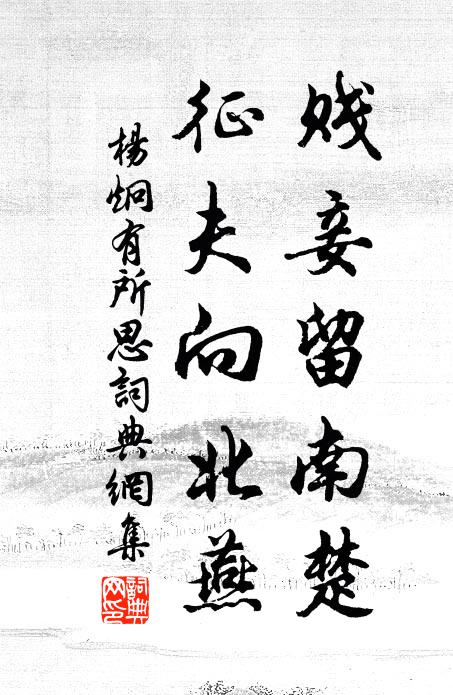 賤妾留南楚
征夫向北燕
楊炯有所思詞典網集
詞典
网印